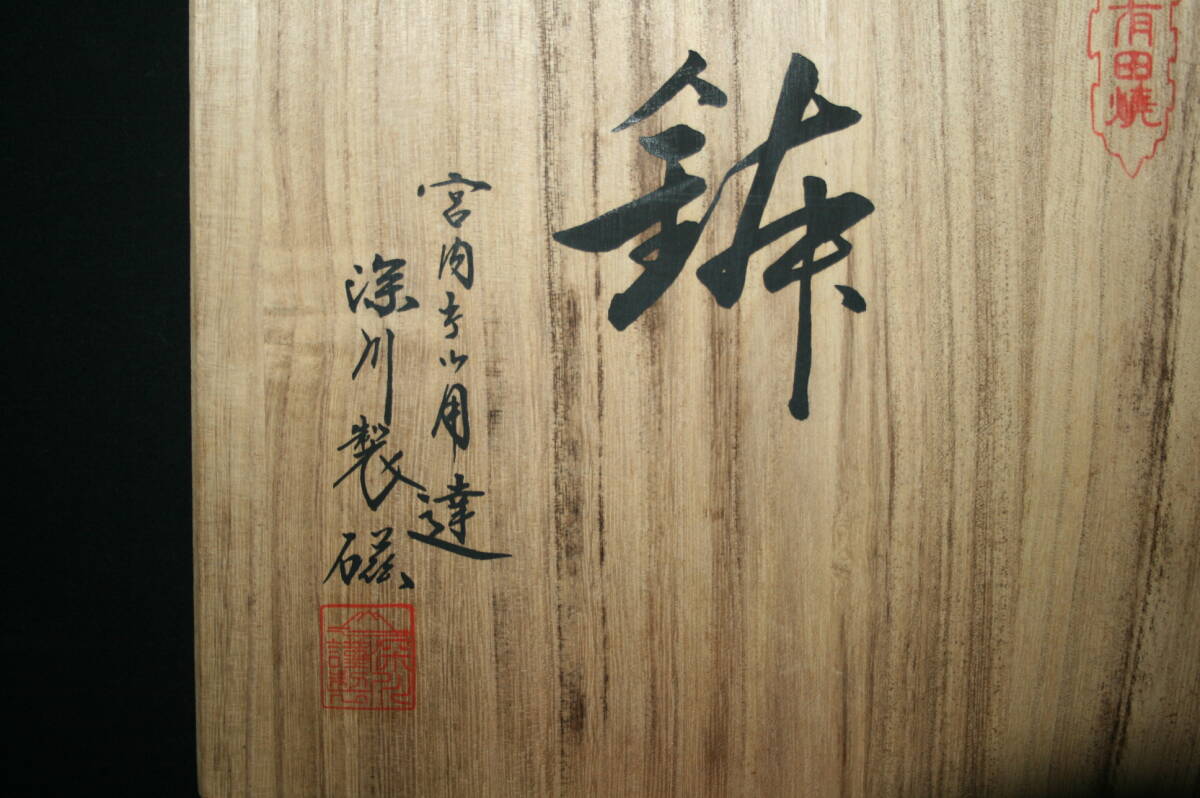 有田焼
鉢
宮内庁御用達
深川製磁